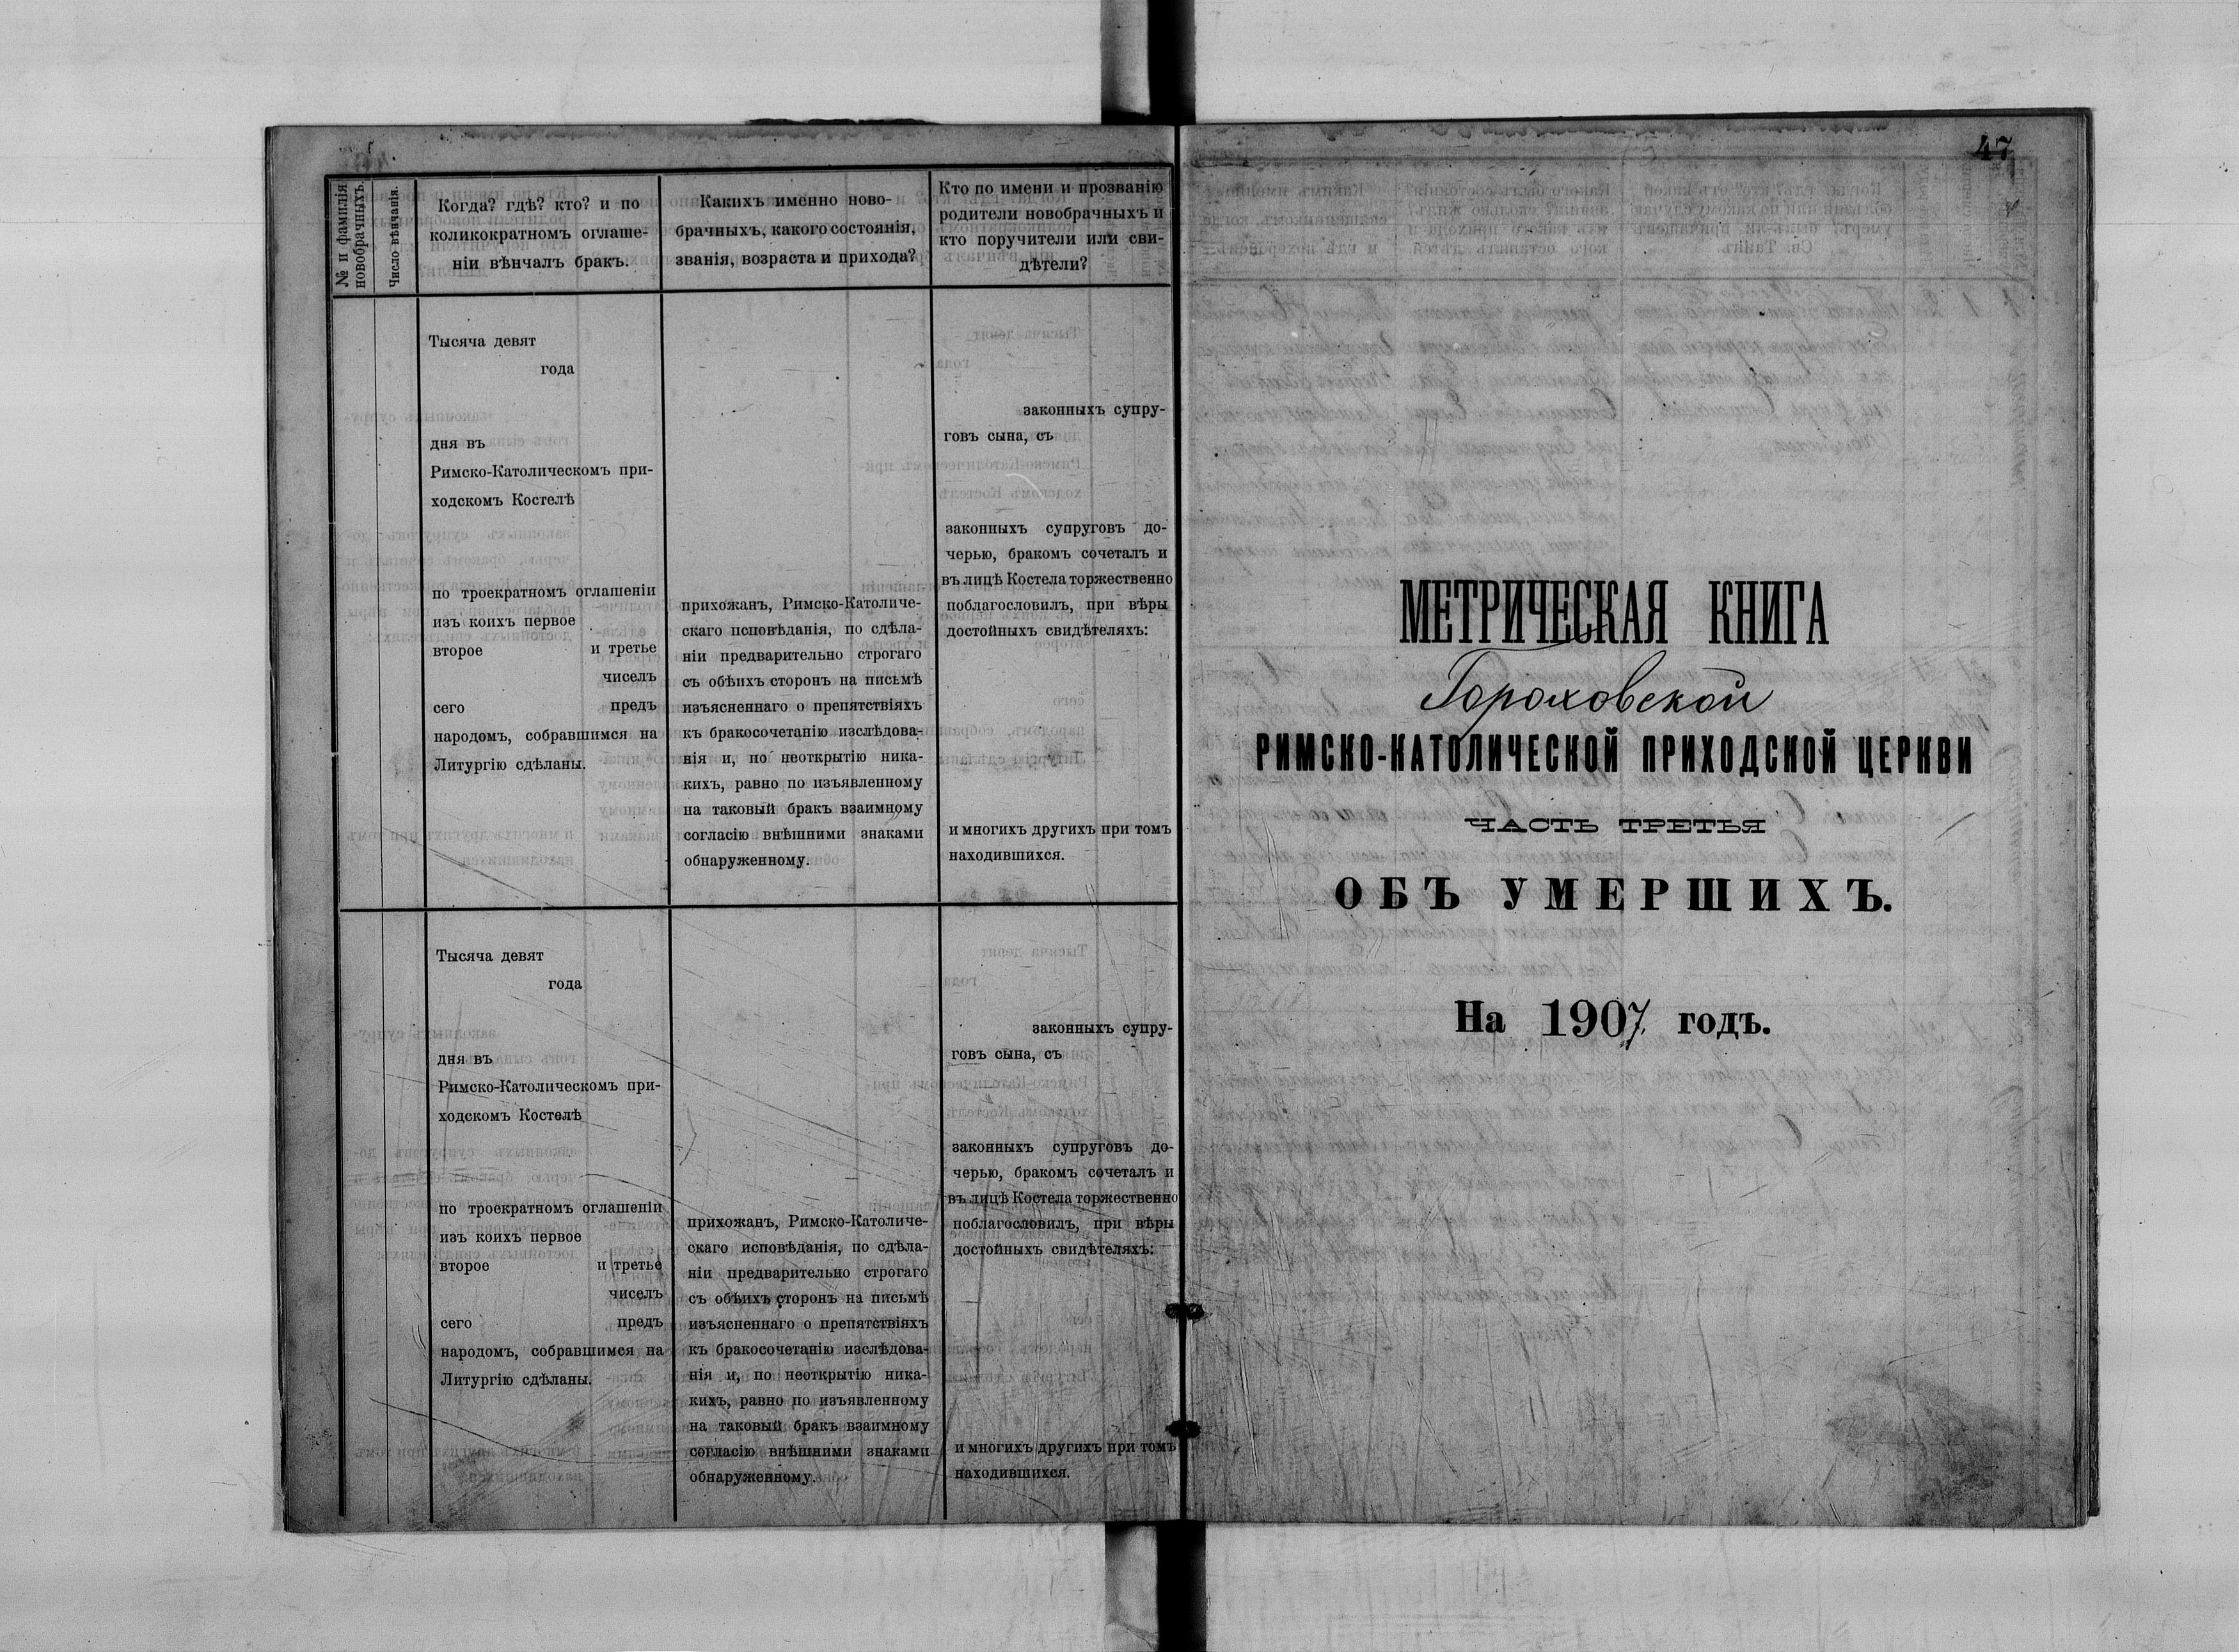 № и фамилія
новобрачныхъ.
Число вѣнчанія.
Когда? гдѣ? кто? и по
коликократномъ оглаше-
ніи вѣнчалъ бракъ.
Какихъ именно ново-
брачныхъ, какого состоянія,
званія, возраста и прихода?
Кто по имени и прозванію
родители новобрачныхъ и
кто поручители или сви-
дѣтели?
Тысяча девят
года
дня въ
Римско-Католическомъ при-
ходскомъ Костелѣ
по троекратномъ оглашеніи
изъ коихъ первое
второе и третье
чиселъ
сего предъ
народомъ, собравшимся на
Литургію сдѣланы.
прихожанъ, Римско-Католиче-
скаго исповѣданія, по сдѣла-
ніи предварительно строгаго
съ обѣихъ сторонъ на письмѣ
изъясненнаго о препятствіяхъ
къ бракосочетанію изслѣдова-
нія и, по неоткрытію ника-
кихъ, равно по изъявленному
на таковый бракъ взаимному
согласію внѣшними знаками
обнаруженному.
законныхъ супру-
говъ сына, съ
законныхъ супруговъ до-
черью, бракомъ сочеталъ и
въ лицѣ Костела торжественно
поблагословилъ, при вѣры
достойныхъ свидѣтеляхъ:
и многихъ другихъ при томъ
находившихся.
Тысяча девят
года
дня въ
Римско-Католическомъ при-
ходскомъ Костелѣ
по троекратномъ оглашеніи
изъ коихъ первое
второе и третье
чиселъ
сего предъ
народомъ, собравшимся на
Литургію сдѣланы.
прихожанъ, Римско-Католиче-
скаго исповѣданія, по сдѣла-
ніи предварительно строгаго
съ обѣихъ сторонъ на письмѣ
изъясненнаго о препятствіяхъ
къ бракосочетанію изслѣдова-
нія и, по неоткрытію ника-
кихъ, равно по изъявленному
на таковый бракъ взаимному
согласію внѣшними знаками
обнаруженному.
законныхъ супру-
говъ сына, съ
законныхъ супруговъ до-
черью, бракомъ сочеталъ и
въ лицѣ Костела торжественно
поблагословилъ, при вѣры
достойныхъ свидѣтеляхъ:
и многихъ другихъ при томъ
находившихся.
47
МЕТРИЧЕСКАЯ КНИГА
Гороховской
РИМСКО-КАТОЛИЧЕСКОЙ ПРИХОДСКОЙ ЦЕРКВИ
ЧАСТЬ ТРЕТЬЯ
ОБЪ УМЕРШИХЪ.
На 1907 годъ.